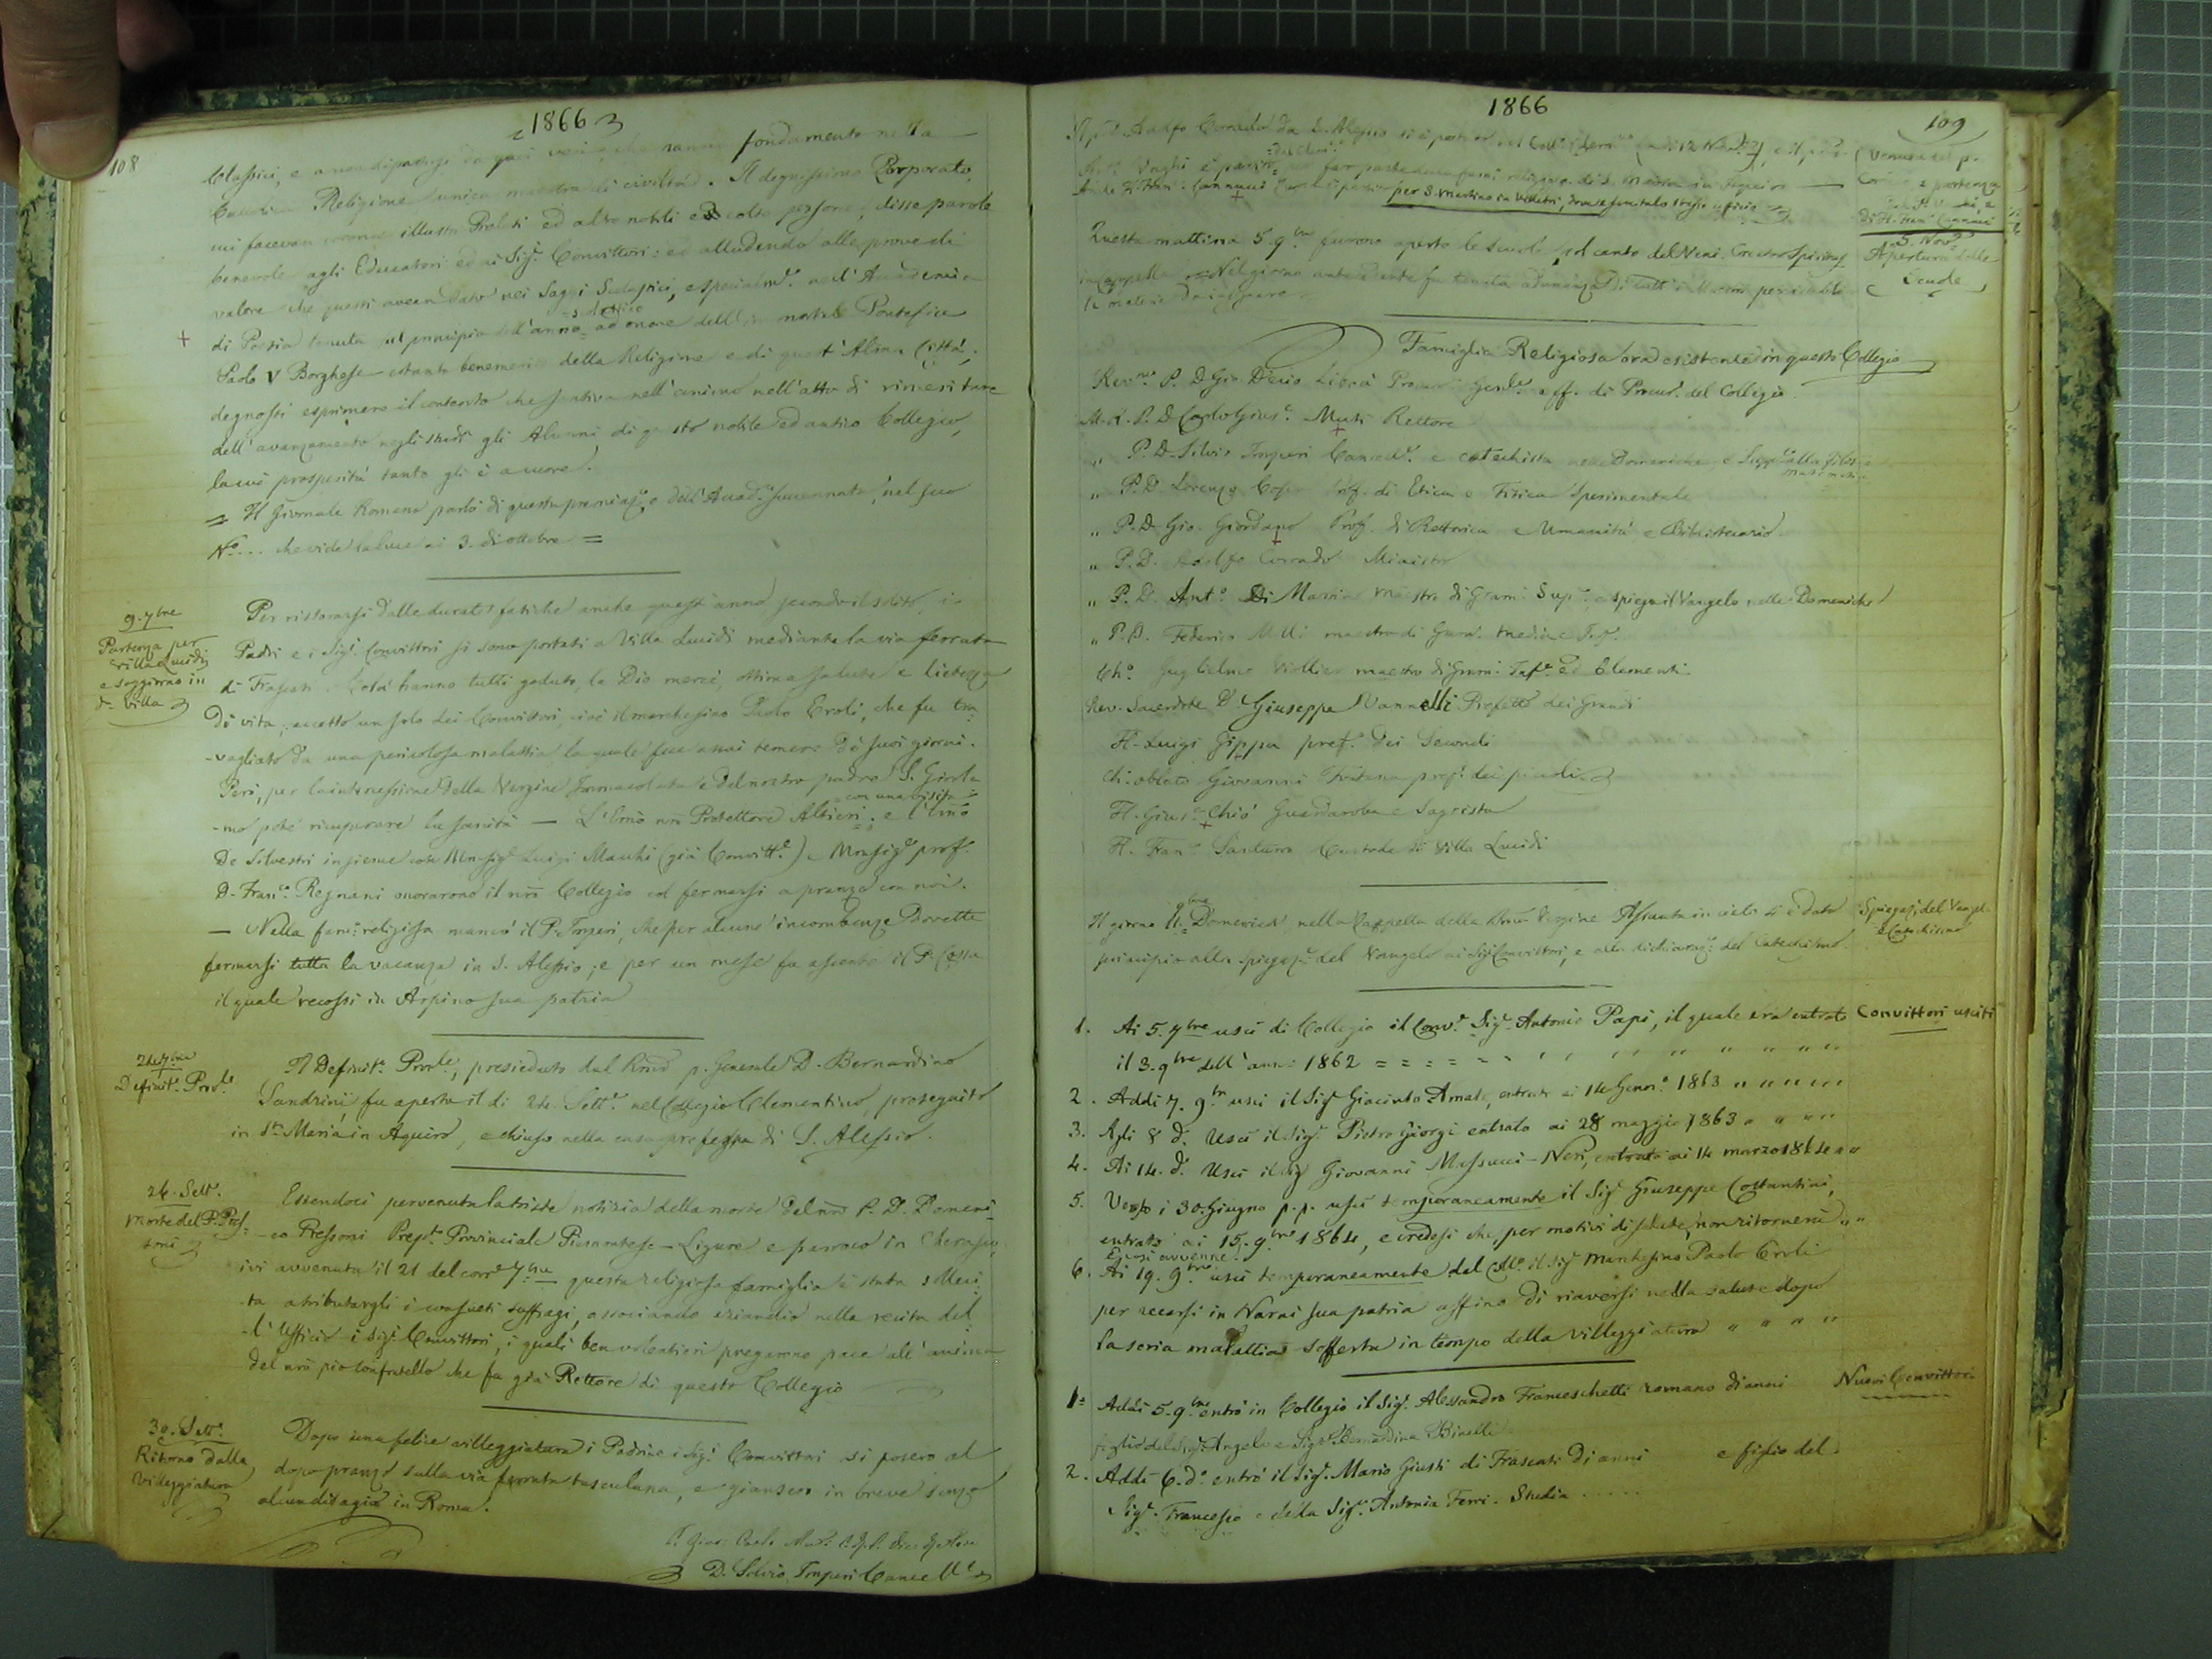 1866
108
Classici, e a non dipartirsi da quei veri, che hanno fondamento nella
Cattolica Religione unica maestra di civiltà. Il degnissimo Porporato,
cui facevan corona illustri Prelati ed altre nobili e colte persone, disse parole
benevole agli Educatori ed ai Sigi. Convittori: ed alludendo alle prove di
valore che questi avean dato nei Saggi Scolastici, e specialmte. nell'Accademia
di Poesia tenuta sul principio dell'anno = scolastico = ad onore dell' immortale Pontefice
Paolo V Borghese cotanto benemerito della Religione e di quest'Alma Città,
degnossi esprimere il contento che sentiva nell'animo nell'atto di rimeritare
dell'avanzamento negli studi gli Alunni di questo nobile ed antico Collegio,
la cui prosperità tanto gli è a cuore.
= Il Giornale Romano parlò di questa premiaze. e dell'Accad.a suaccennata, nel suo
No... che vide la luce ai 3. di ottobre =
9. 7bre
Partenza per
Villa Lucidi
e soggiorno in
da. Villa
Per ristorarsi dalle durate fatiche anche quest'anno, secondo il solito, i
Padri e i Sigi. Convittori si sono portati a Villa Lucidi mediante la via ferrata
di Frascati. Colà hanno tutti goduto, la Dio mercè, ottima salute e lietezza
di vita, eccetto un solo dei Convittori, cioè il marchesino Paolo Eroli, che fu tra-
-vagliato da una pericolosa malattia, la quale fece assai temere di suoi giorni.
Però, per la intercessione della Vergine Immacolata e del nostro padre S. Girola-
-mo potè ricuperare la sanità — L'Emo nro Protettore Altieri = con una visita = e l'Emo
De Silvestri insieme con Monsigr Luigi Macchi (già Convitte.) e Monsigr prof.
D. Franco. Regnani onorarono il nro Collegio col fermarsi a pranzo con noi.
— Nella fama religiosa mancò il P. Imperi, che per alcune incombenze dovette
fermarsi tutta la vacanza in S. Alessio; e per un mese fu assente il P. Cossa
il quale recossi in Arpino sua patria
24. 7bre
Definite. Provle.
Il Definite. Provle, presieduto dal Rmo p. Generale D. Bernardino
Sandrini, fu aperto il dì 24. Sette. nel Collegio Clementino, proseguito
in Sta Maria in Aquiro, e chiuso nella casa professa di S. Alessio.
26. Sette.
morte del P. Pres-
soni
Essendoci pervenuta la triste notizia della morte del nro P. D. Domeni-
-co Pressoni Prepto. Provinciale Piemontese-Ligure e parroco in Cherasco,
ivi avvenuta il 21 del corre 7bre questa religiosa famiglia è stata solleci-
ta a tributargli i consueti suffragi, associando eziandio nella recita del-
-l'Ufficio i Sigi. Convittori, i quali ben volentieri pregarono pace all'anima
del nro pio confratello che fu già Rettore di questo Collegio
30. Sette.
Ritorno dalla
Villeggiatura
Dopo una felice villeggiatura i Padri e i Sigi. Convittori si posero al
dopo pranzo sulla via ferrata tusculana, e giunsero in breve senza
alcun disagio in Roma.
D. Silvio Imperi Cancellre
1866
109
Il p. D. Adolfo Corrado da S. Alessio si è portato nel Coll. Clemo. (ai 12 Nobre), e il p. D.
per S. Martino in Velletri, dove esercita lo stesso ufficio
Venuta del p.
Corrado e partenza
di Fl. Fran. Cannucci
Questa mattina 5. 9bre furono aperte le scuole, col canto del Veni Creator Spiritus
in Cappella = Nel giorno antecedente fu tenuta adunanza di tutti i Maestri per stabilire
le materie da insegnare =
5. Nove
Apertura delle
Scuole
Famiglia Religiosa ora esistente in questo Collegio
Revmo P. D. Gio. Decio Libois Procur. Genle. e ff. di Procure. del Collegio
M. R. P. D. Carlo Giuse. Muti Rettore
" P. D. Silvio Imperi Cancelle. e catechista nelle Domeniche e Suppte. alla filosa. e Matematica
" P. D. Lorenzo Cossa Prof. di Etica e Fisica Sperimentale
" P. D. Gio. Giordano Prof. di Rettorica e Umanità e Bibliotecario
" P. D. Adolfo Corrado Ministro
" P. D. Anto. Di Martino maestro di Gram. Supe. e spiega il Vangelo nelle Domeniche
" P. D. Federico Melli maestro di Gram. media e Infe.
Cho. Guglielmo Viollier maestro di Gram. Infe. ed Elementi
Rev. Sacerdote D. Giuseppe Vannelli Prefetto dei Grandi
Fl. Luigi Gippa pref. dei Secondi
Ch. oblato Giovanni Fontana pref. dei piccoli
Fl. Giuse. Chiò Guardaroba e Sagrista
Fl. Fran. Santurro Custode di Villa Lucidi
Il giorno 11. 9bre = Domenica = nella Cappella della Bma Vergine Assunta in cielo si è dato
principio alla spiegaze del Vangelo ai Sigi Convittori, e alla dichiaraze. del Catechismo.
Spiegaze. del Vangelo
e Catechismo
1. Ai 5. 7bre uscì di Collegio il Conve. Sigr. Antonio Papi, il quale era entrato
il 3. 9bre dell'anno 1862 = = = = = " " " " " " "
Convittori usciti
2. Addì 7. 9bre uscì il Sigr Giacinto Amati, entrato ai 14 Geno. 1863 " " " " "
3. Agli 8 do. Uscì il Sigr. Pietro Giorgi entrato ai 28 maggio 1863 " " " "
4. Ai 14. do. Uscì il Sigr Giovanni Massucci-Neri, entrato ai 14 marzo 1864 " "
5. Verso i 30. Giugno p.p. uscì temporaneamente il Sigr Giuseppe Costantini,
entrato ai 15. 9bre 1864, e credesi che, per motivi di salute, non ritornerà " "
E così avvenne.
6. Ai 19. 9bre uscì temporaneamente dal Collo. il Sigr Marchesino Paolo Eroli
per recarsi in Narni sua patria affine di riaversi nella salute dopo
la seria malattia sofferta in tempo della villeggiatura " " " "
1= Addì 5. 9bre entrò in Collegio il Sigr. Alessandro Franceschetti romano di anni
figlio del Sigr. Angelo e Siga Bernardina Binelli
Nuovi Convittori
2. Addì 6. do. entrò il Sigr. Mario Giusti di Frascati di anni e figlio del
Sigr. Francesco e della Siga. Antonia Ferri. Studia .....